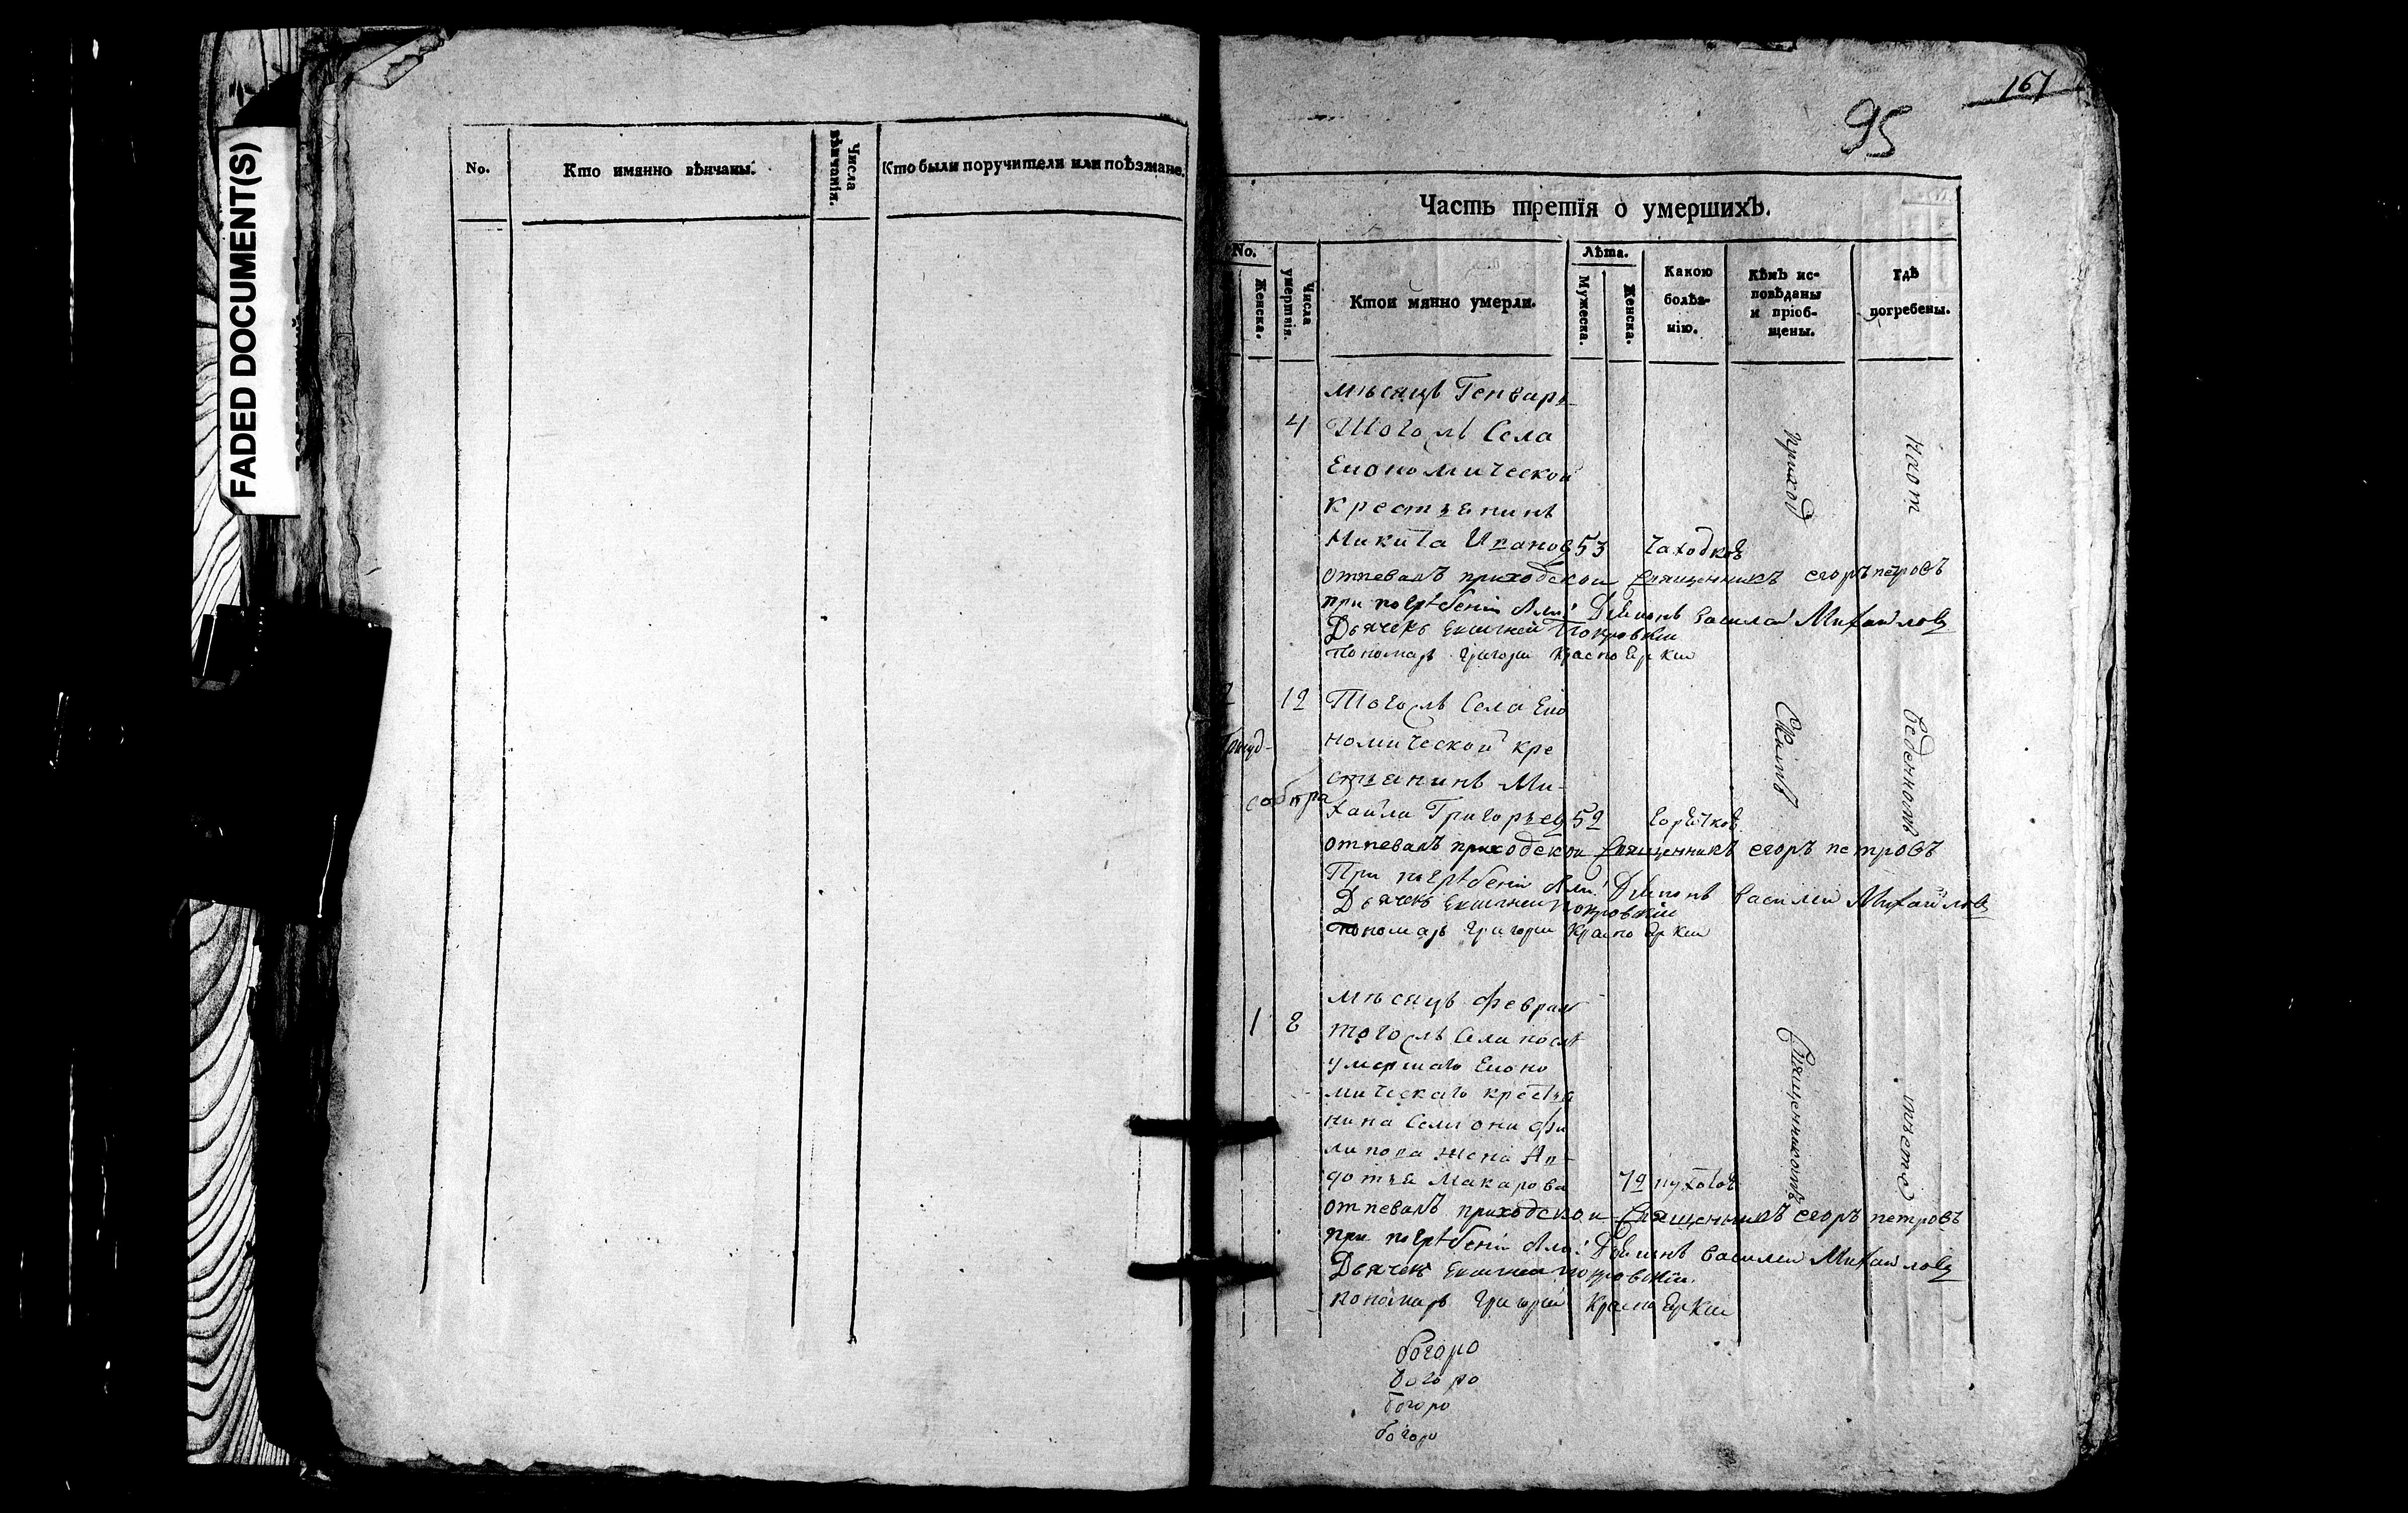 FADED DOCUMENT(S)
No.
Кто имянно вѣнчаны.
Числа вѣнчанїя.
Кто были поручители или поѣзжане.
167
95
Часть третїя о умершихъ.
No.
Женска.
Числа умертвїя.
Ктои мянно умерли.
Лѣта.
Мужеска.
Женска.
Какою
болѣз-
нїю.
Кѣмъ ис-
повѣданы
и прїоб-
щены.
Гдѣ
погребены.
мѣсяцъ Генварь
4 Тогожъ Села
Економической
крестьянинъ
Никита Иванов 53 чахоткою
отпевалъ приходской священникъ егоръ петровъ
при погребенїи были: Дьяконъ василей Михайловъ
Дьячекъ Покровскїи
пономарь григорїи Красноярскїи
приход
2 12 Тогожъ Села Еко
номической кре
стьянинъ Ми-
хайла Григорьев 52 горячкою
отпевалъ приходской священникъ егоръ петровъ
При погребенїи были: Дьяконъ василей Михайловъ
Дьячекъ Покровскїи
пономарь григорїи Красноярскїи
Скимъ
веденномъ
мѣсяцъ феврал
1 8 тогожъ Села послѣ
умершаго Еконо
мическаго крестья
нина Семиона фи
липова жена Ав-
дотья Макарова 72
отпевалъ приходской священникъ егоръ петровъ
при погребенїи были: Дьяконъ василей Михайловъ
Дьячекъ Покровскїи.
пономарь григорїй Красноярскїи
Священникомъ
мѣсте
богоро
богоро
богоро
богоро